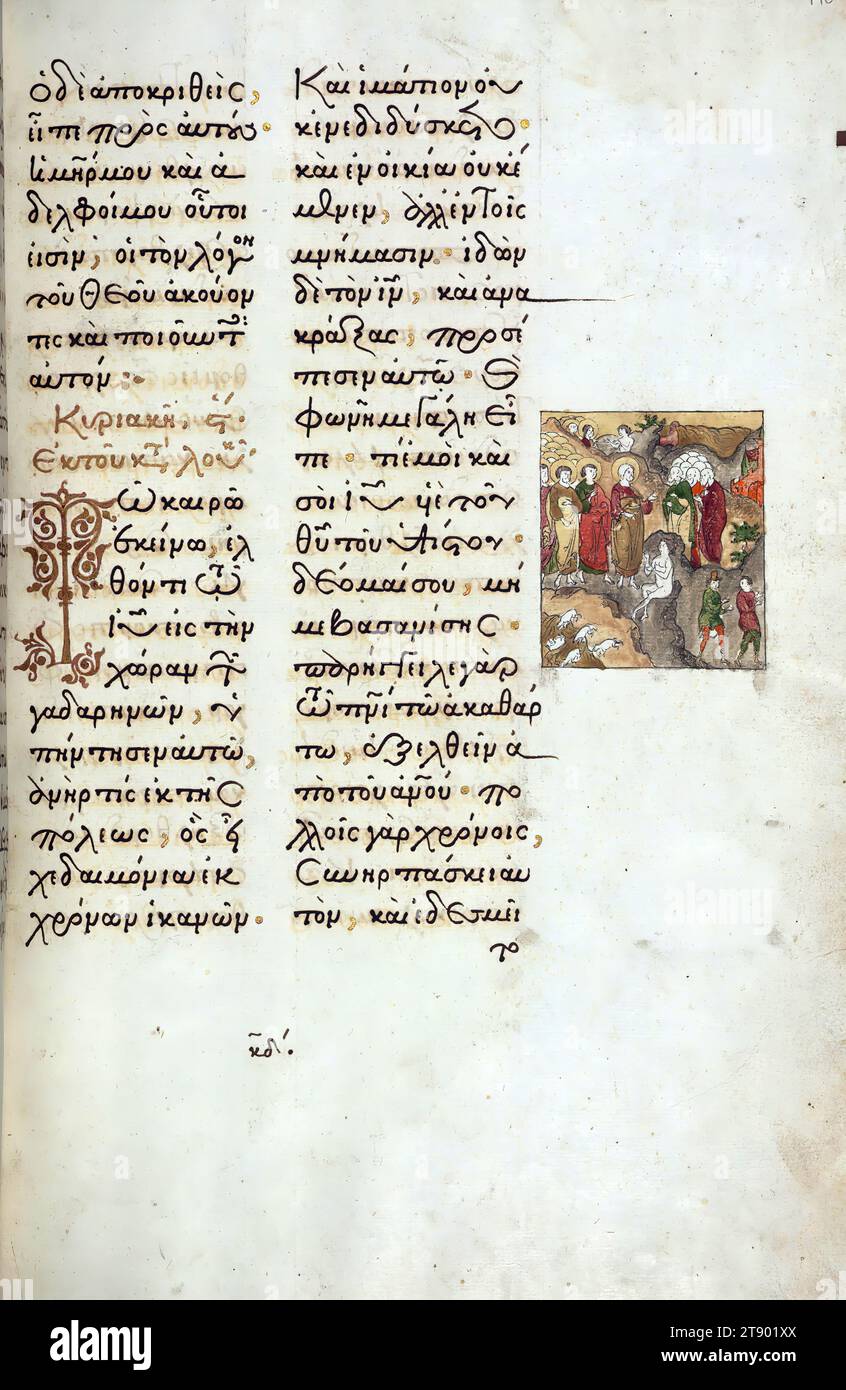 ὁ δὲ ἀποκριθεὶς,
εἶπε πρὸς αὐτούς·
μήτηρ μου καὶ ἀ
δελφοί μου οὗτοί
εἰσιν, οἱ τὸν λόγον
τοῦ Θεοῦ ἀκούον
τες καὶ ποιοῦντες
αὐτόν:·
Κυριακῇ, ϛ΄.
Ἐκ τοῦ κατὰ λουκᾶν
Τῶ καιρῶ
ἐκείνω, ἐλ
θόντι τῶ
Ἰῦ εἰς τὴν
χώραν τῶν
γαδαρηνῶν, ὑ
πήντησεν αὐτῶ,
ἀνήρ τίς ἐκ τῆς
πόλεως, ὃς εἶ
χε δαιμόνια ἐκ
χρόνων ἱκανῶν·
Καὶ ἱμάτιον οὐ
κ ἐνεδιδύσκετο·
καὶ ἐν οἰκία οὐκ ἔ
μενεν, ἀλλ' ἐν τοῖς
μνήμασιν· ἰδὼν
δὲ τὸν ἰν̄, καὶ ἀνα
κράξας, προσέ
πεσεν αὐτῶ· καὶ
φωνῇ μεγάλη εἶ
πε· τί ἐμοὶ καὶ
σοὶ ἰῦ υἱὲ τοῦ
θῦ τοῦ ὑψίστου·
δέομαί σου, μή
με βασανίσης·
παρήγγειλε γὰρ
τῶ πνὶ τῶ ἀκαθάρ
τω, ἐξελθεῖν ἀ
πὸ τοῦ ἀνου· πο
λλοῖς γὰρ χρόνοις,
συνηρπάκει αὐ
τὸν, καὶ ἐδεσμεῖ
το
κδ΄.
alamy
Image ID: 2T901XX
www.alamy.com